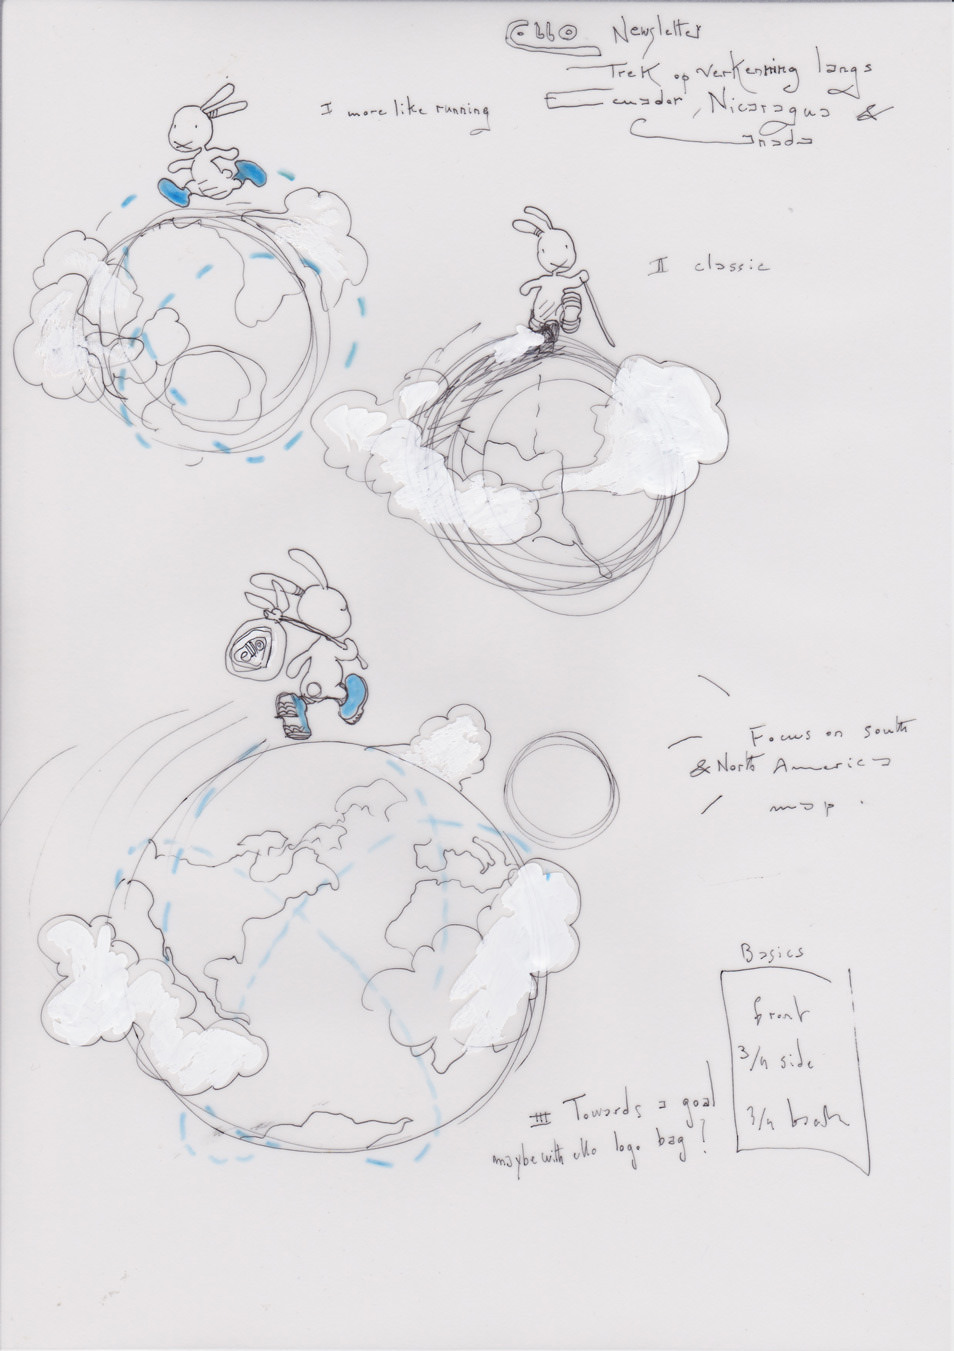 ello Newsletter
Trek op verkenning langs
Ecuador, Nicaragua &
Canada
I more like running
II classic
ello
Focus on south
& North America
map.
Basics
front
3/4 side
3/4 back
III Towards a goal
maybe with ello logo bag?